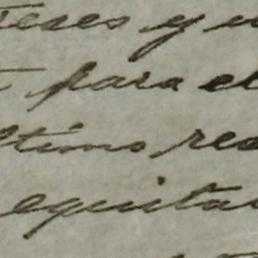 teses y u
para el
ltimo res
equita